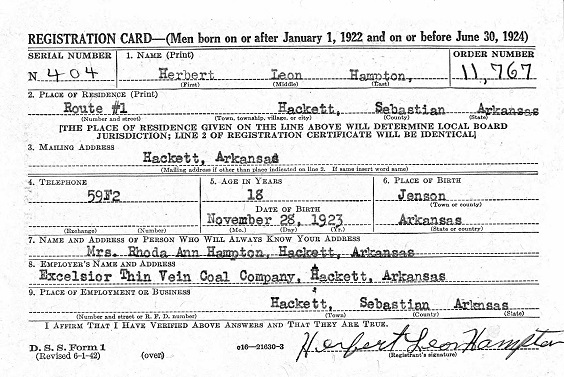 REGISTRATION CARD—(Men born on or after January 1, 1922 and on or before June 30, 1924)
SERIAL NUMBER 1. NAME (Print) ORDER NUMBER
N 404 Herbert Leon Hampton, 11,767
(First) (Middle) (Last)
2. PLACE OF RESIDENCE (Print)
Route #1 Hackett, Sebastian Arkansas
(Number and street) (Town, township, village, or city) (County) (State)
[THE PLACE OF RESIDENCE GIVEN ON THE LINE ABOVE WILL DETERMINE LOCAL BOARD
JURISDICTION; LINE 2 OF REGISTRATION CERTIFICATE WILL BE IDENTICAL]
3. MAILING ADDRESS
Hackett, Arkansas
(Mailing address if other than place indicated on line 2. If same insert word same)
4. TELEPHONE 5. AGE IN YEARS 6. PLACE OF BIRTH
59F2 18 Jenson
(Town or county)
DATE OF BIRTH
November 28, 1923 Arkansas
(Exchange) (Number) (Mo.) (Day) (Yr.) (State or country)
7. NAME AND ADDRESS OF PERSON WHO WILL ALWAYS KNOW YOUR ADDRESS
Mrs. Rhoda Ann Hampton, Hackett, Arkansas
8. EMPLOYER'S NAME AND ADDRESS
Excelsior Thin Vein Coal Company, Hackett, Arkansas
9. PLACE OF EMPLOYMENT OR BUSINESS
Hackett, Sebastian Arknsas
(Number and street or R. F. D. number) (Town) (County) (State)
I AFFIRM THAT I HAVE VERIFIED ABOVE ANSWERS AND THAT THEY ARE TRUE.
D. S. S. Form 1
(Revised 6-1-42) (over) c16—21630-3 Herbert Leon Hampton
(Registrant's signature)